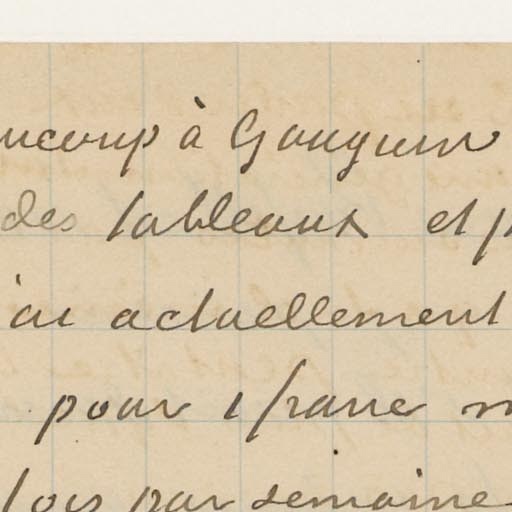 ucoup à Gauguin
des tableaux et p
'ai actuellement
pour 1 franc m
fois par semaine